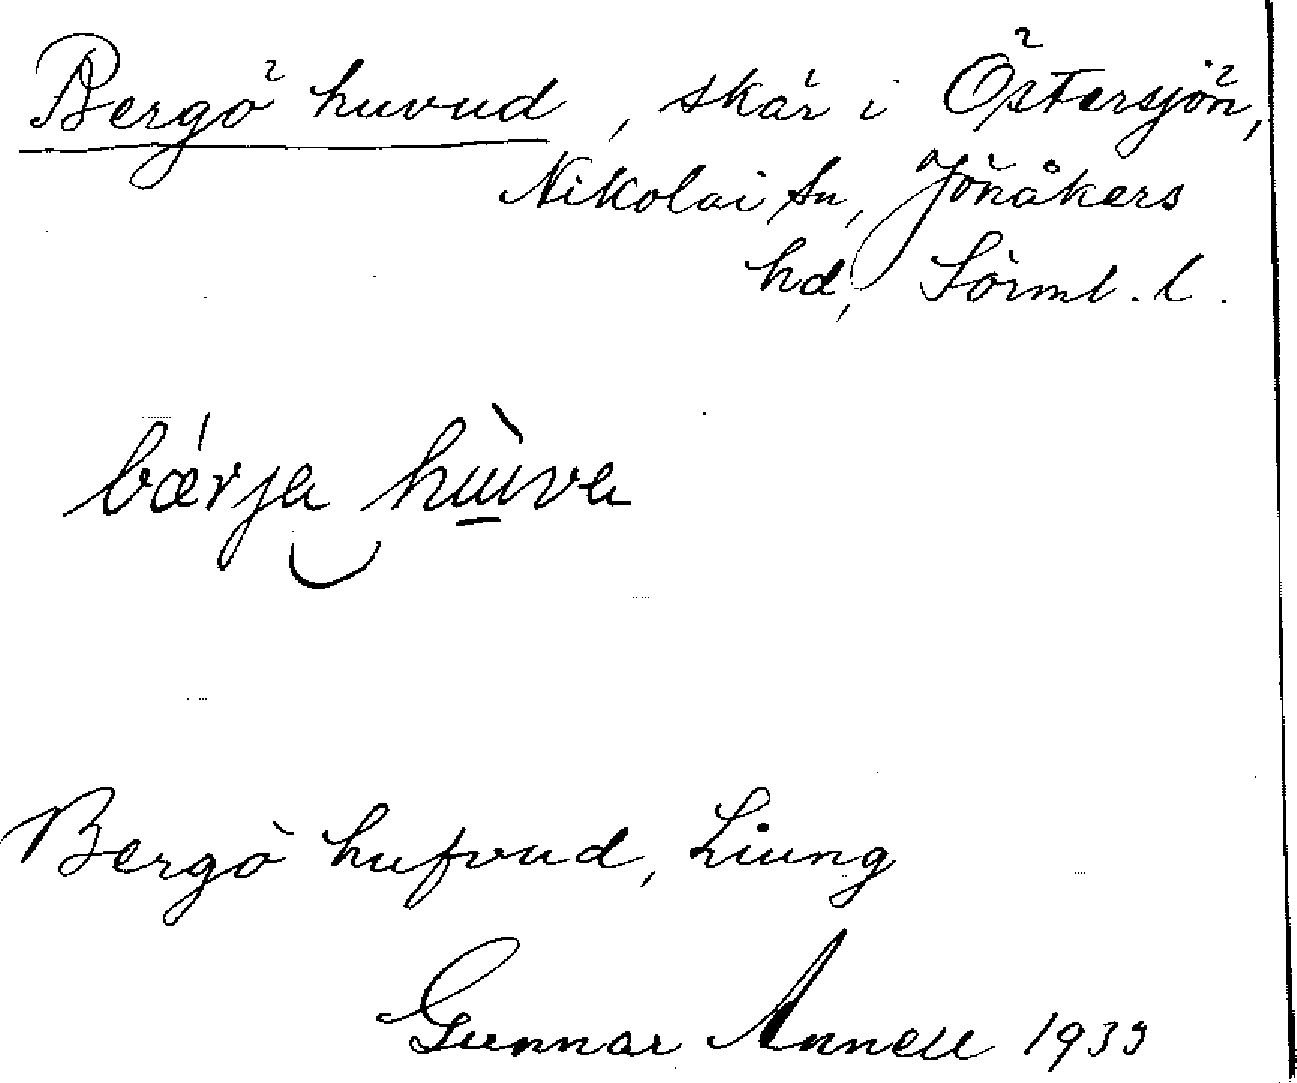 Bergö huvud, skär i Östersjön,
Nikolai sn, Jönåkers
hd, Sörml. l.
bǽrja hùva
Bergö hufvud, Liung
Gunnar Annell 1933